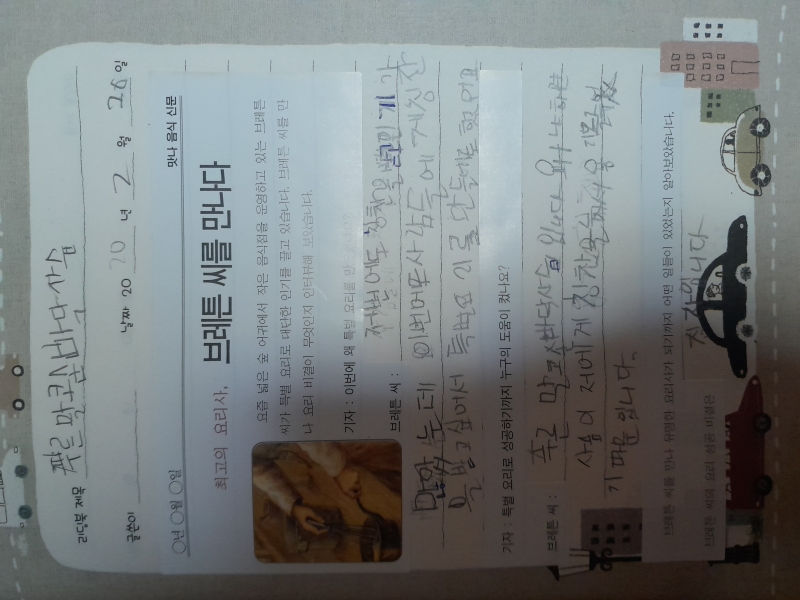 리딩북 제목 푸른 말코손바닥사슴
글쓴이
날짜 2020 년 2 월 26 일
○년○월○일
맛나 음식 신문
최고의 요리사, 브레튼 씨를 만나다
요즘 넓은 숲 어귀에서 작은 음식점을 운영하고 있는 브레튼
씨가 특별 요리로 대단한 인기를 끌고 있습니다. 브레튼 씨를 만
나 요리 비결이 무엇인지 인터뷰해 보았습니다.
기자 : 이번에 왜 특별 요리를 만
브레튼 씨 : 저번에도 칭찬을
받았는데 이번에도 사람들에게 칭찬
을 받고 싶어서 특별요리를 만들게 됐어요
기자 : 특별 요리로 성공하기까지 누구의 도움이 컸나요?
브레튼 씨 : 푸른 말코손바닥사슴 입니다 왜냐하면
사슴이 저에게 칭찬을
기 때문입니다.
브레튼 씨를 만나 유명한 요리사가 되기까지 어떤 일들이 있었는지 알아보았습니다.
브레튼 씨의 요리 성공 비결은
입니다.